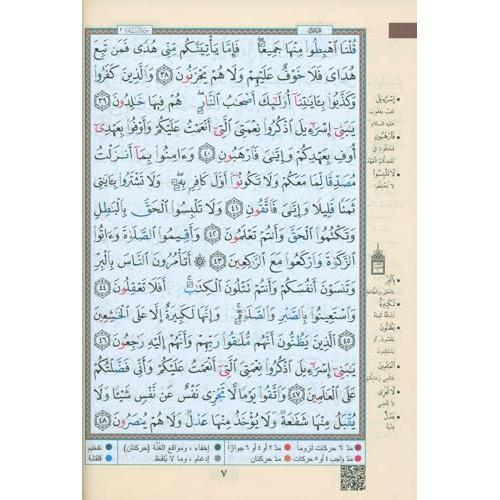 قُلْنَا ٱهْبِطُوا۟ مِنْهَا جَمِيعًا ۖ فَإِمَّا يَأْتِيَنَّكُم مِّنِّى هُدًى فَمَن تَبِعَ
هُدَاىَ فَلَا خَوْفٌ عَلَيْهِمْ وَلَا هُمْ يَحْزَنُونَ ٣٨ وَٱلَّذِينَ كَفَرُوا۟
وَكَذَّبُوا۟ بِـَٔايَـٰتِنَآ أُو۟لَـٰٓئِكَ أَصْحَـٰبُ ٱلنَّارِ ۖ هُمْ فِيهَا خَـٰلِدُونَ ٣٩
يَـٰبَنِىٓ إِسْرَٰٓءِيلَ ٱذْكُرُوا۟ نِعْمَتِىَ ٱلَّتِىٓ أَنْعَمْتُ عَلَيْكُمْ وَأَوْفُوا۟ بِعَهْدِىٓ
أُوفِ بِعَهْدِكُمْ وَإِيَّـٰىَ فَٱرْهَبُونِ ٤٠ وَءَامِنُوا۟ بِمَآ أَنزَلْتُ
مُصَدِّقًا لِّمَا مَعَكُمْ وَلَا تَكُونُوٓا۟ أَوَّلَ كَافِرٍۭ بِهِۦ ۖ وَلَا تَشْتَرُوا۟ بِـَٔايَـٰتِى
ثَمَنًا قَلِيلًا وَإِيَّـٰىَ فَٱتَّقُونِ ٤١ وَلَا تَلْبِسُوا۟ ٱلْحَقَّ بِٱلْبَـٰطِلِ
وَتَكْتُمُوا۟ ٱلْحَقَّ وَأَنتُمْ تَعْلَمُونَ ٤٢ وَأَقِيمُوا۟ ٱلصَّلَوٰةَ وَءَاتُوا۟
ٱلزَّكَوٰةَ وَٱرْكَعُوا۟ مَعَ ٱلرَّٰكِعِينَ ٤٣ ۞ أَتَأْمُرُونَ ٱلنَّاسَ بِٱلْبِرِّ
وَتَنسَوْنَ أَنفُسَكُمْ وَأَنتُمْ تَتْلُونَ ٱلْكِتَـٰبَ ۚ أَفَلَا تَعْقِلُونَ ٤٤
وَٱسْتَعِينُوا۟ بِٱلصَّبْرِ وَٱلصَّلَوٰةِ ۚ وَإِنَّهَا لَكَبِيرَةٌ إِلَّا عَلَى ٱلْخَـٰشِعِينَ
٤٥ ٱلَّذِينَ يَظُنُّونَ أَنَّهُم مُّلَـٰقُوا۟ رَبِّهِمْ وَأَنَّهُمْ إِلَيْهِ رَٰجِعُونَ ٤٦
يَـٰبَنِىٓ إِسْرَٰٓءِيلَ ٱذْكُرُوا۟ نِعْمَتِىَ ٱلَّتِىٓ أَنْعَمْتُ عَلَيْكُمْ وَأَنِّى فَضَّلْتُكُمْ
عَلَى ٱلْعَـٰلَمِينَ ٤٧ وَٱتَّقُوا۟ يَوْمًا لَّا تَجْزِى نَفْسٌ عَن نَّفْسٍ شَيْـًٔا وَلَا
يُقْبَلُ مِنْهَا شَفَـٰعَةٌ وَلَا يُؤْخَذُ مِنْهَا عَدْلٌ وَلَا هُمْ يُنصَرُونَ ٤٨
إسراءيل
لقب يعقوب
عليه السلام
فارهبون
لا تلبسوا
لا تخلطوا
بالبر
لكبيرة
يظنون
العالمين
لا تجزي
لا تقضي
عدل
فدية
مدّ ٦ حركات لزوماً
مدّ ٢ أو ٤ أو ٦ جوازاً
إخفاء، ومواقع الغُنَّة (حركتان)
تفخيم
مدّ واجب ٤ أو ٥ حركات
مدّ حركتان
إدغام، وما لا يُلفظ
قلقلة
٧